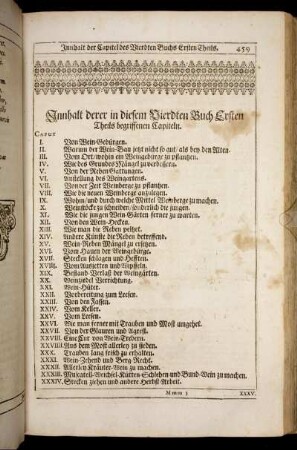 Innhalt der Capitel des Vierdten Buchs Ersten Theils. 459
Innhalt derer in diesem Vierdten Buch Ersten
Theils begriffenen Capiteln.
CAPUT
I. Von Wein-Gebürgen.
II. Warum der Wein-Bau jetzt nicht so gut/ als bey den Alten.
III. Vom Ort/ wohin ein Weingebürge zu pflantzen.
IV. Wie des Grundes Mängel zu verbessern.
V. Von der Reben Gattungen.
VI. Anstellung des Weingartens.
VII. Von der Zeit Weinberge zu pflantzen.
VIII. Wie die neuen Weinberge anzulegen.
IX. Wohen/ und durch welche Mittel Weinberge zu machen.
X. Weinstöcke zu schneiden/ sonderlich die jungen.
XI. Wie die jungen Wein-Gärten ferner zu warten.
XII. Von den Wein-Hecken.
XIII. Wie man die Reben peltzet.
XIV. Andere Künste die Reben betreffend.
XV. Wein-Reben Mängel zu ersetzen.
XVI. Vom Hauen der Weingebürge.
XVII. Stecken schlagen und Hefften.
XVIII. Vom Aussetzen und Gipffeln.
XIX. Bestand-Verlaß der Weingärten.
XX. Weinzedel Verrichtung.
XXI. Wein-Hüter.
XXII. Vorbereitung zum Lesen.
XXIII. Von den Fassen.
XXIV. Vom Keller.
XXV. Vom Lesen.
XXVI. Wie man ferner mit Trauben und Most umgehet.
XXVII. Von der Glauren und Agrest.
XXVIII. Eine Cur von Wein-Trebern.
XXVIIII. Aus dem Most allerley zu sieden.
XXX. Trauben lang frisch zu erhalten.
XXXI. Wein-Zehend und Berg-Recht.
XXXII. Allerley Kräuter-Wein zu machen.
XXXIII. Muscatell-Weichsel-Kütten-Schlehen und Band-Wein zu machen.
XXXIV. Stecken ziehen und andere Herbst Arbeit.
Mmm 2 XXXV.